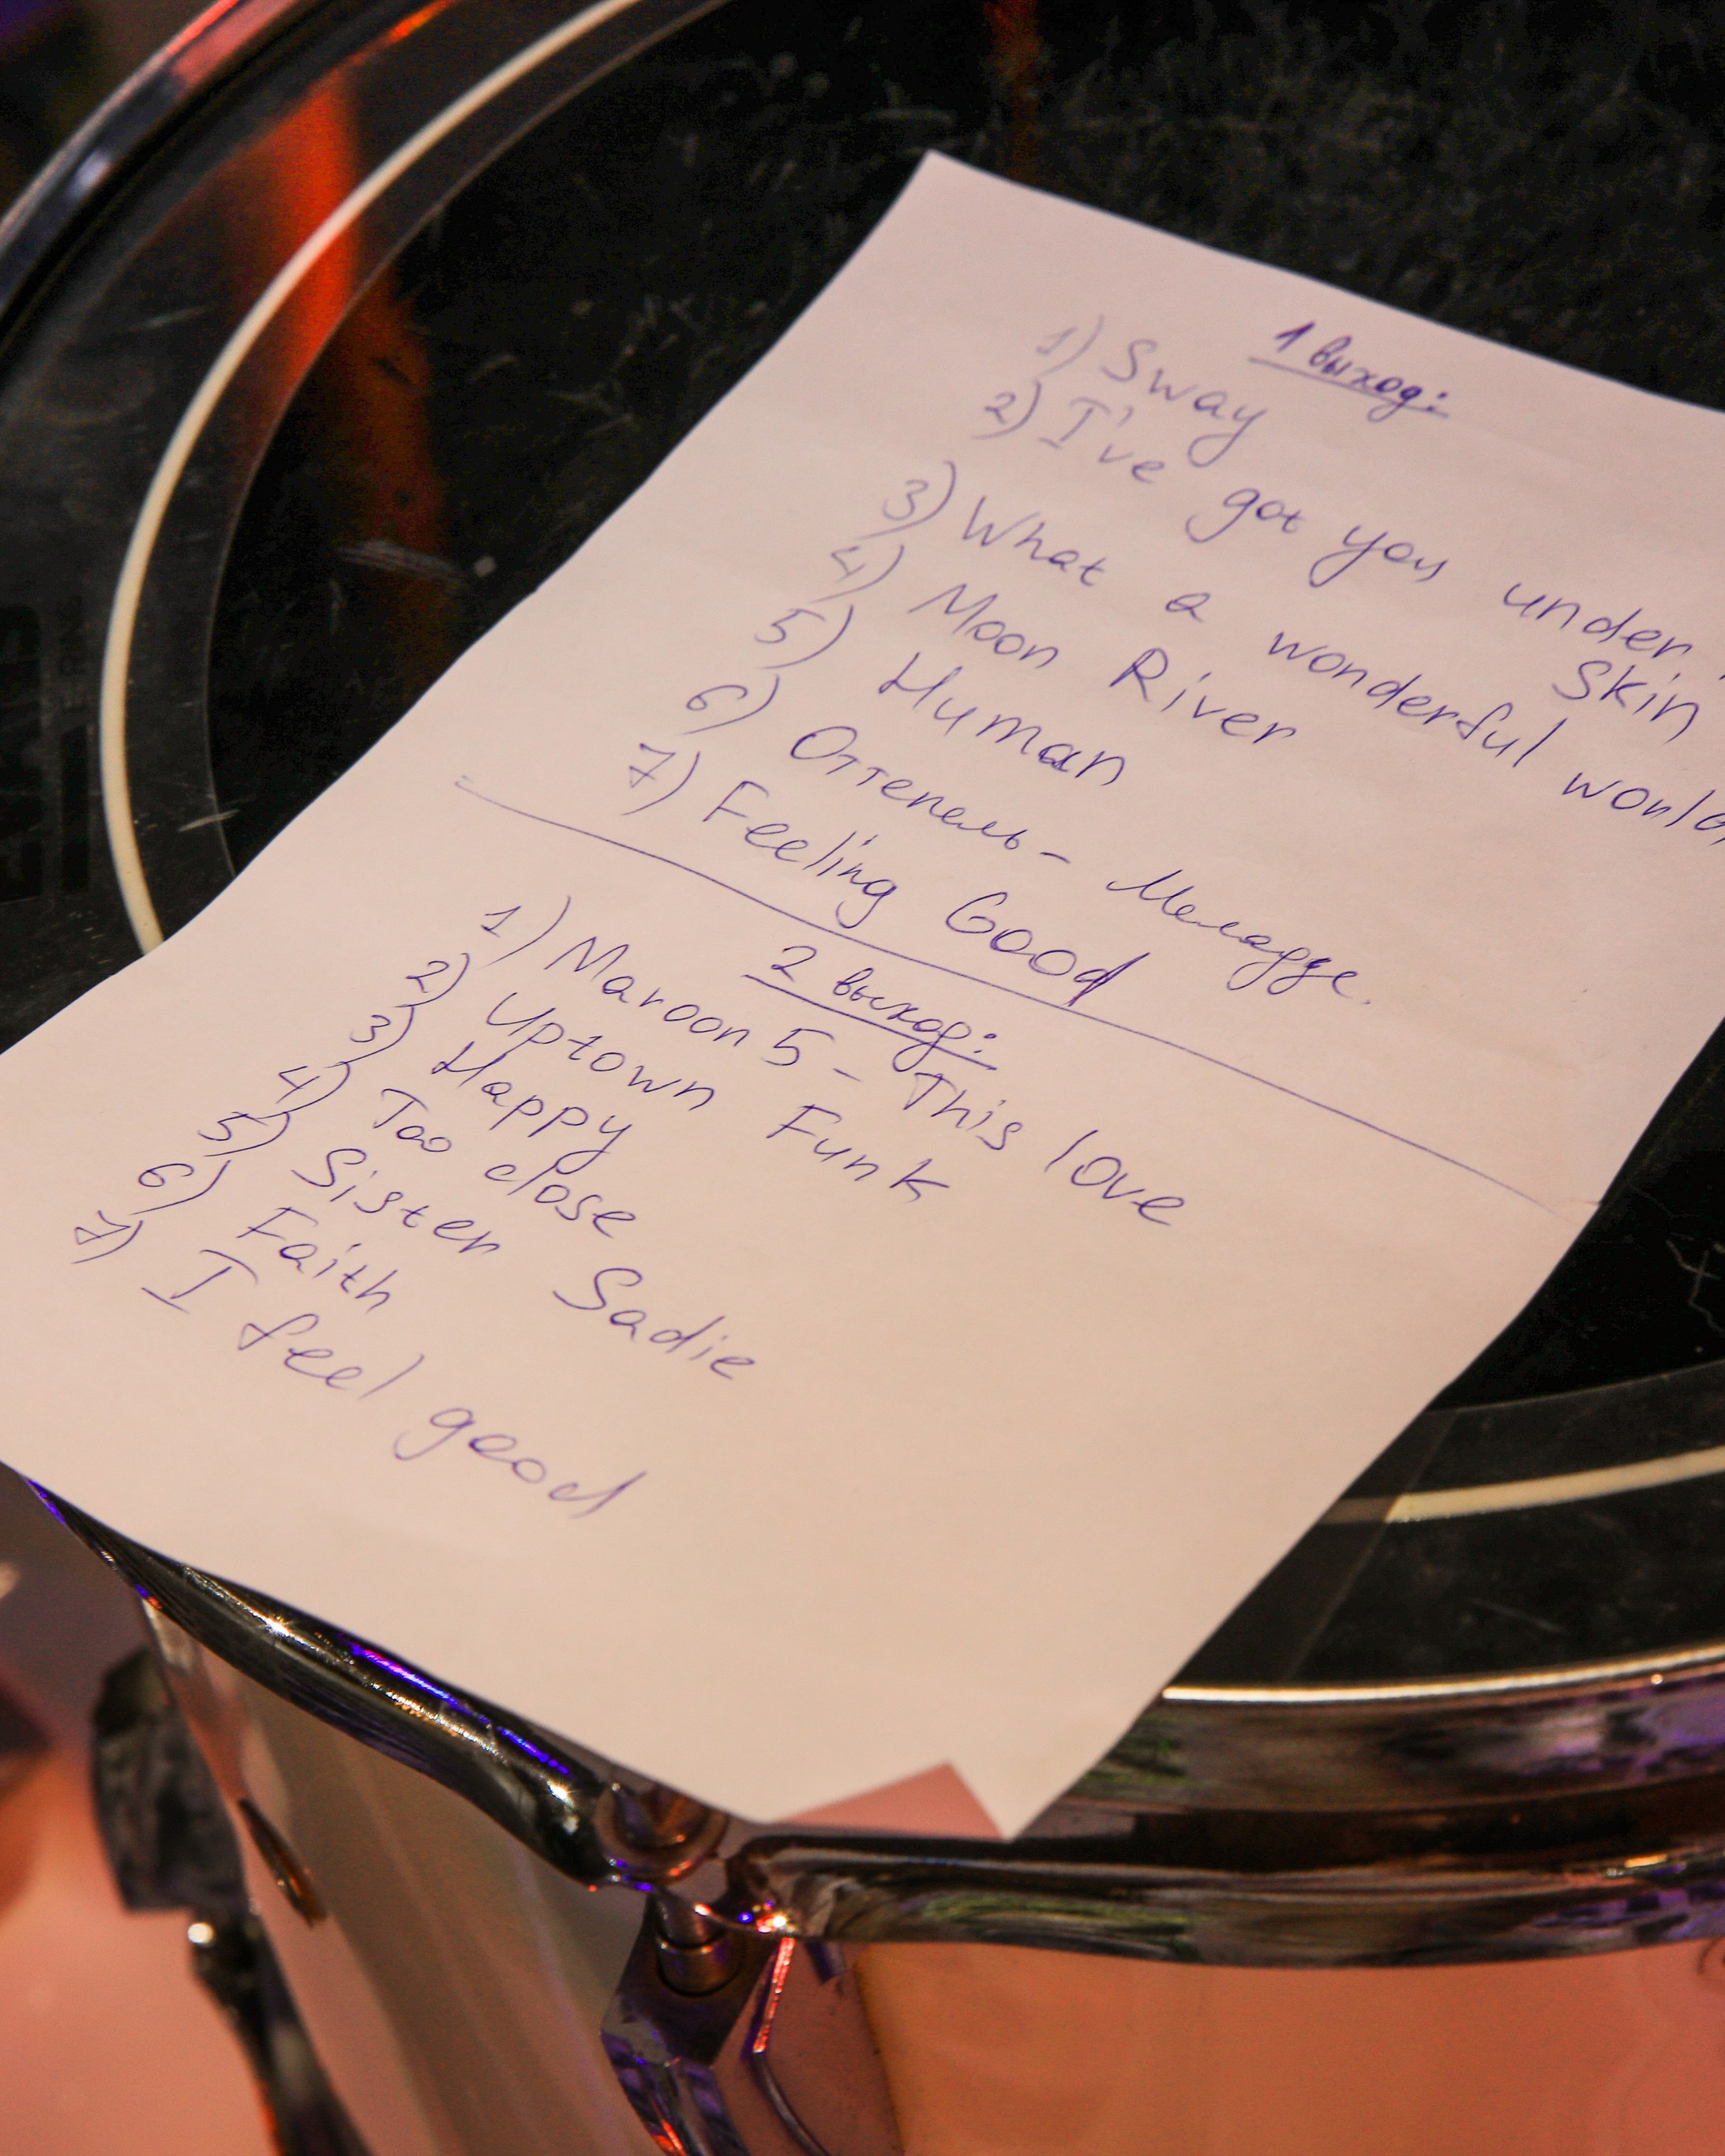 1 выход:
1) Sway
2) I've got you under
skin
3) What a wonderful world
4) Moon River
5) Human
6) Оттепель - Меладзе.
7) Feeling Good
2 выход:
1) Maroon 5 - This love
2) Uptown Funk
3) Happy
4) Too close
5) Sister Sadie
6) Faith
7) I feel good